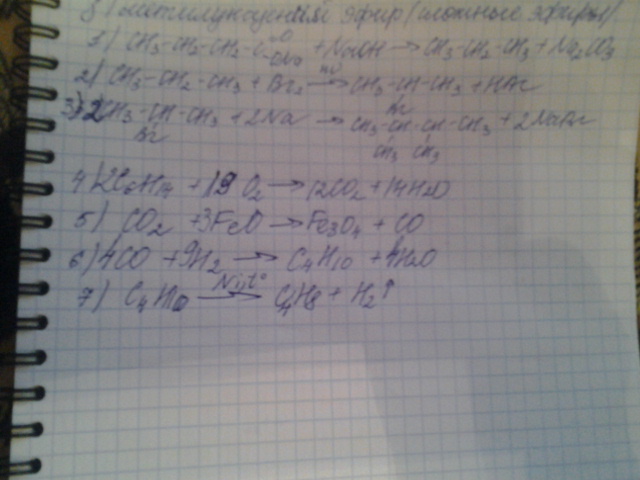 8) метилуксусный эфир (сложные эфиры)
1) CH3-CH2-CH2-C=O-ONa + NaOH → CH3-CH2-CH3 + Na2CO3
2) CH3-CH2-CH3 + Br2 hν→ CH3-CH-CH3 + HBr
Br
3) 2CH3-CH-CH3 + 2Na → CH3-CH-CH-CH3 + 2NaBr
Br CH3 CH3
4) 2C6H14 + 19O2 → 12CO2 + 14H2O
5) CO2 + 3FeO → Fe3O4 + CO
6) 4CO + 9H2 → C4H10 + 4H2O
7) C4H10 Ni,t°→ C4H8 + H2↑